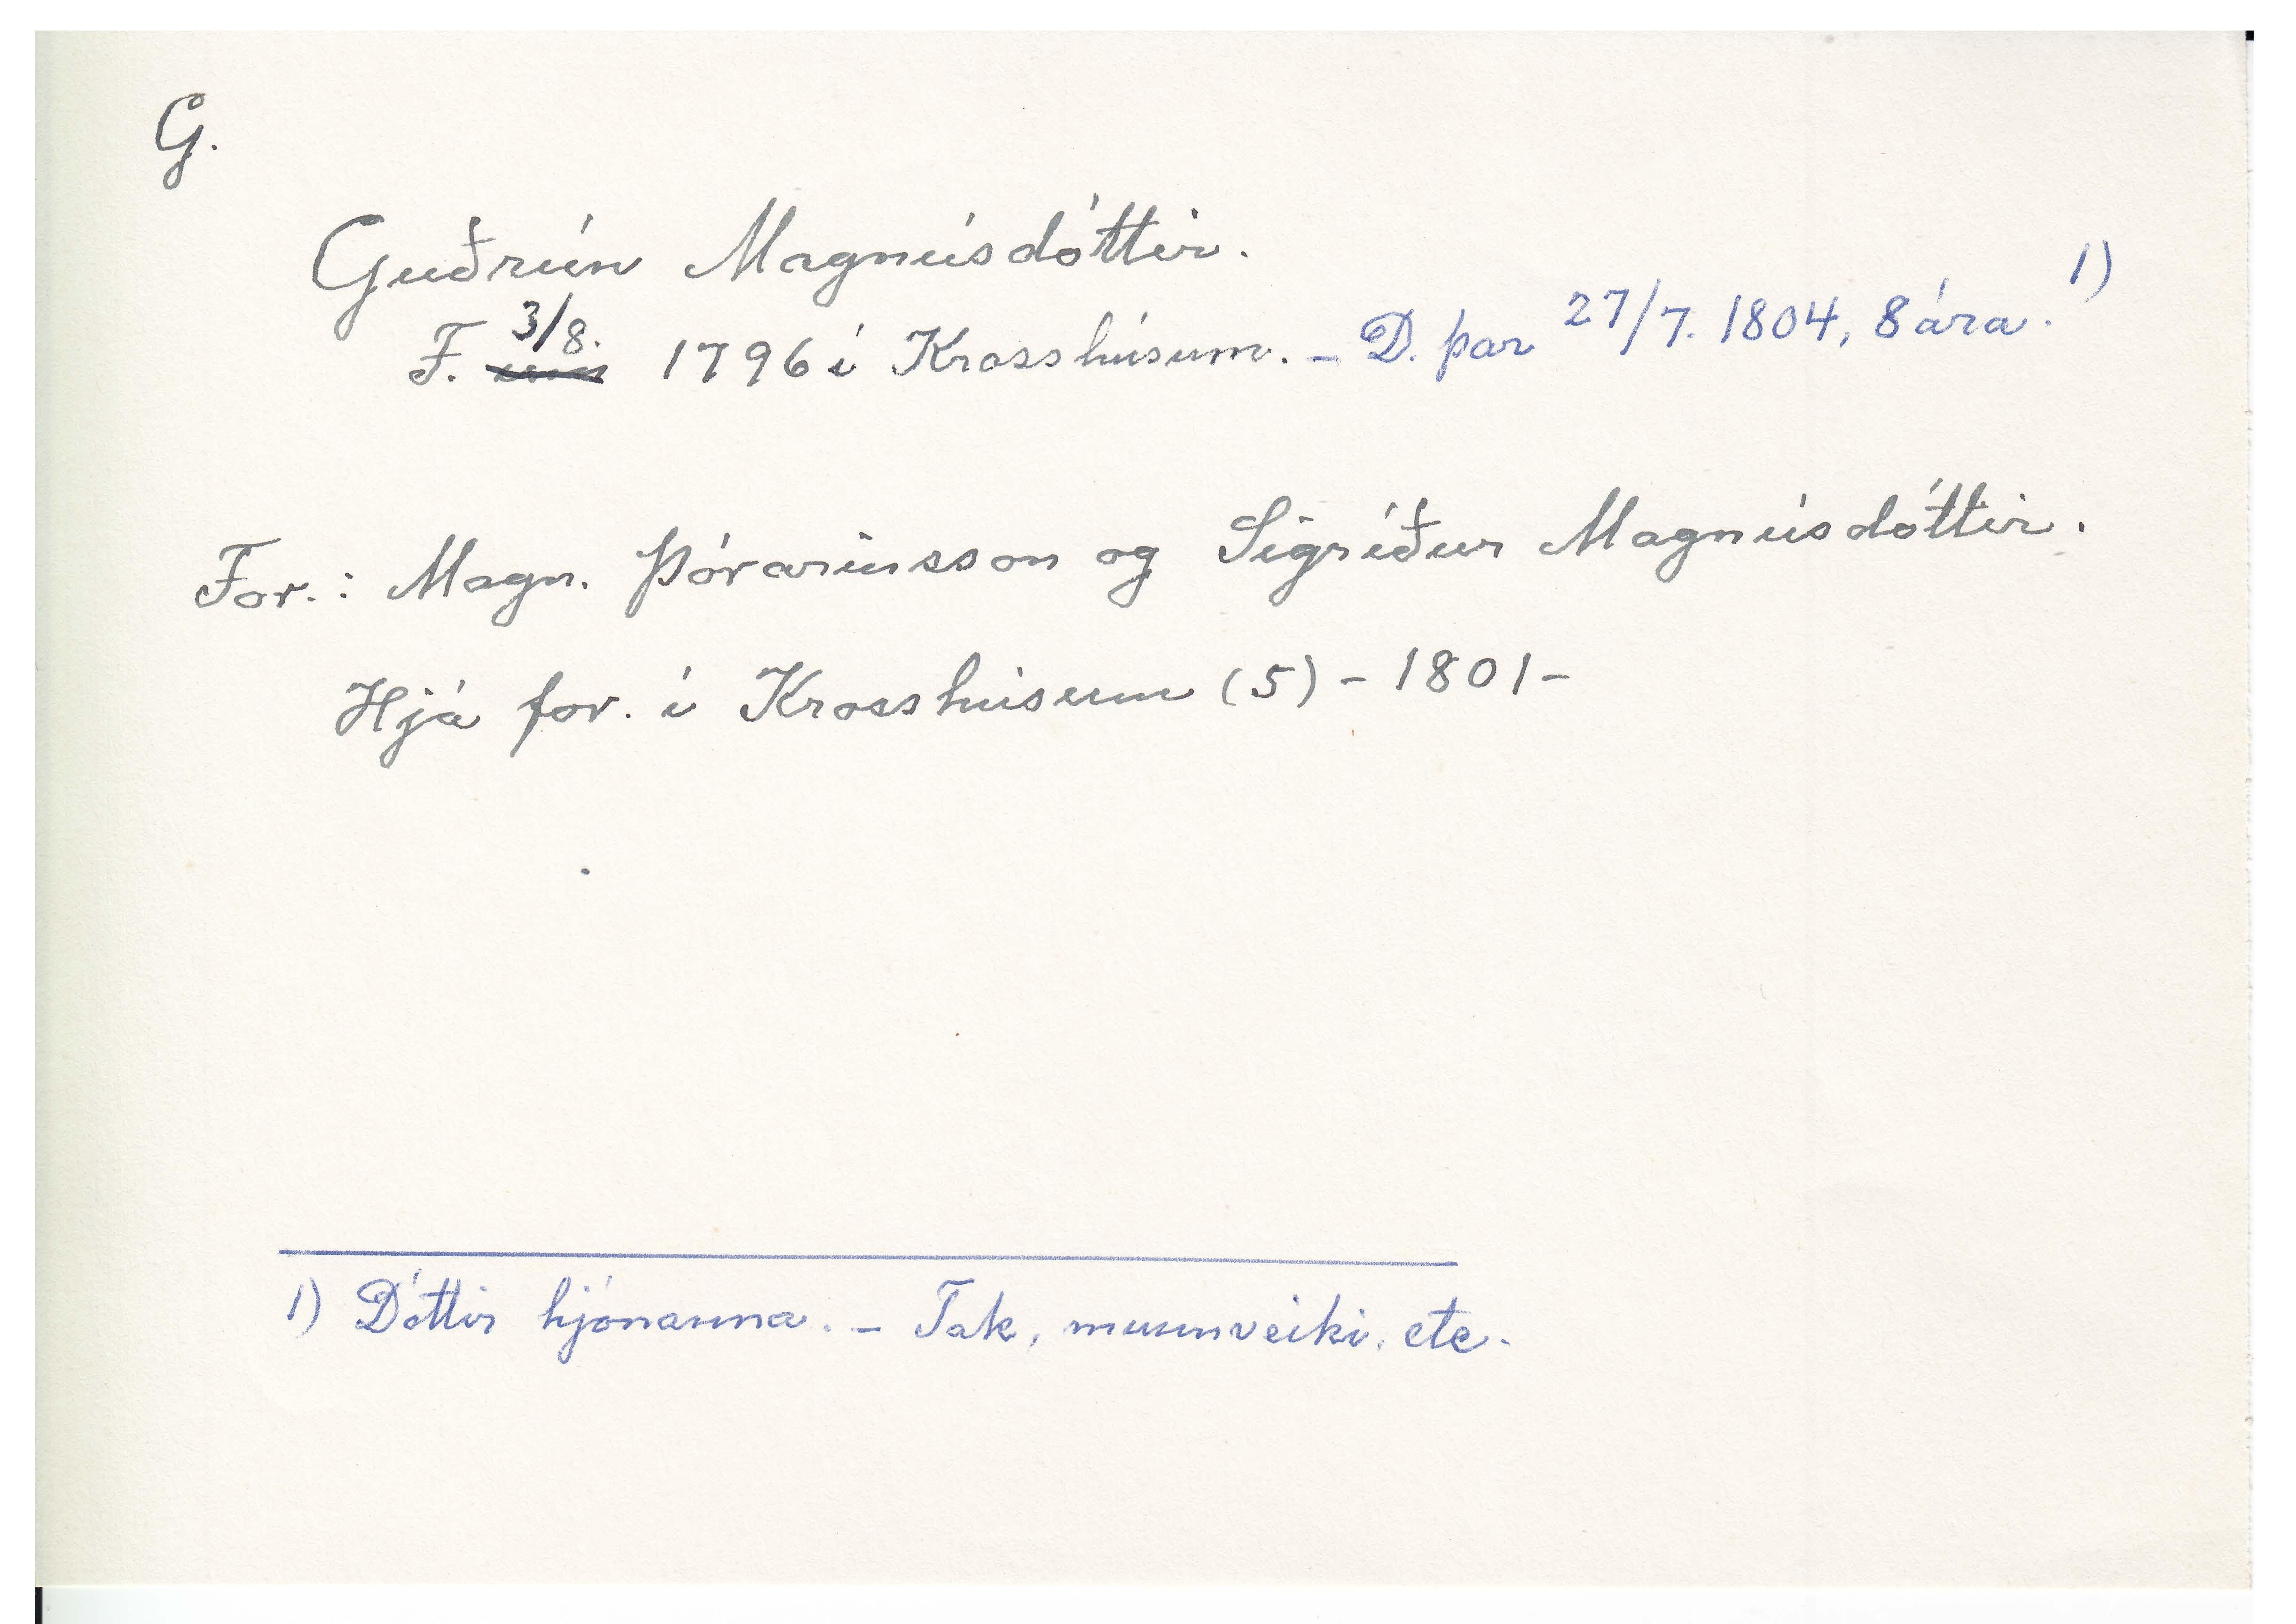 G.
Guðrún Magnúsdóttir.
F. 3/8. 1796 í Krosshúsum. – D. þar 27/7. 1804, 8 ára. 1)
For.: Magn. Þórarinsson og Sigríður Magnúsdóttir.
Hjá for. í Krosshúsum (5) - 1801 -
1) Dóttir hjónanna. – Tak, munnveiki, etc.